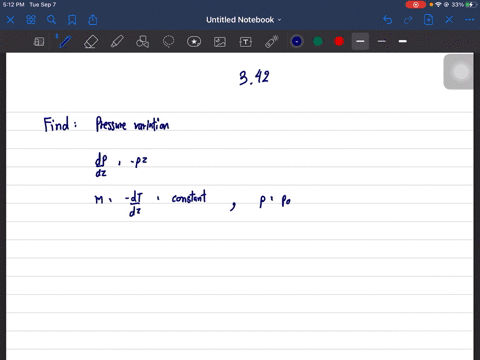 5:12 PM Tue Sep 7
33%
Untitled Notebook
3.42
Find: Pressure variation
dP/dz = -ρz
M = -dT/dz = constant , P = P₀